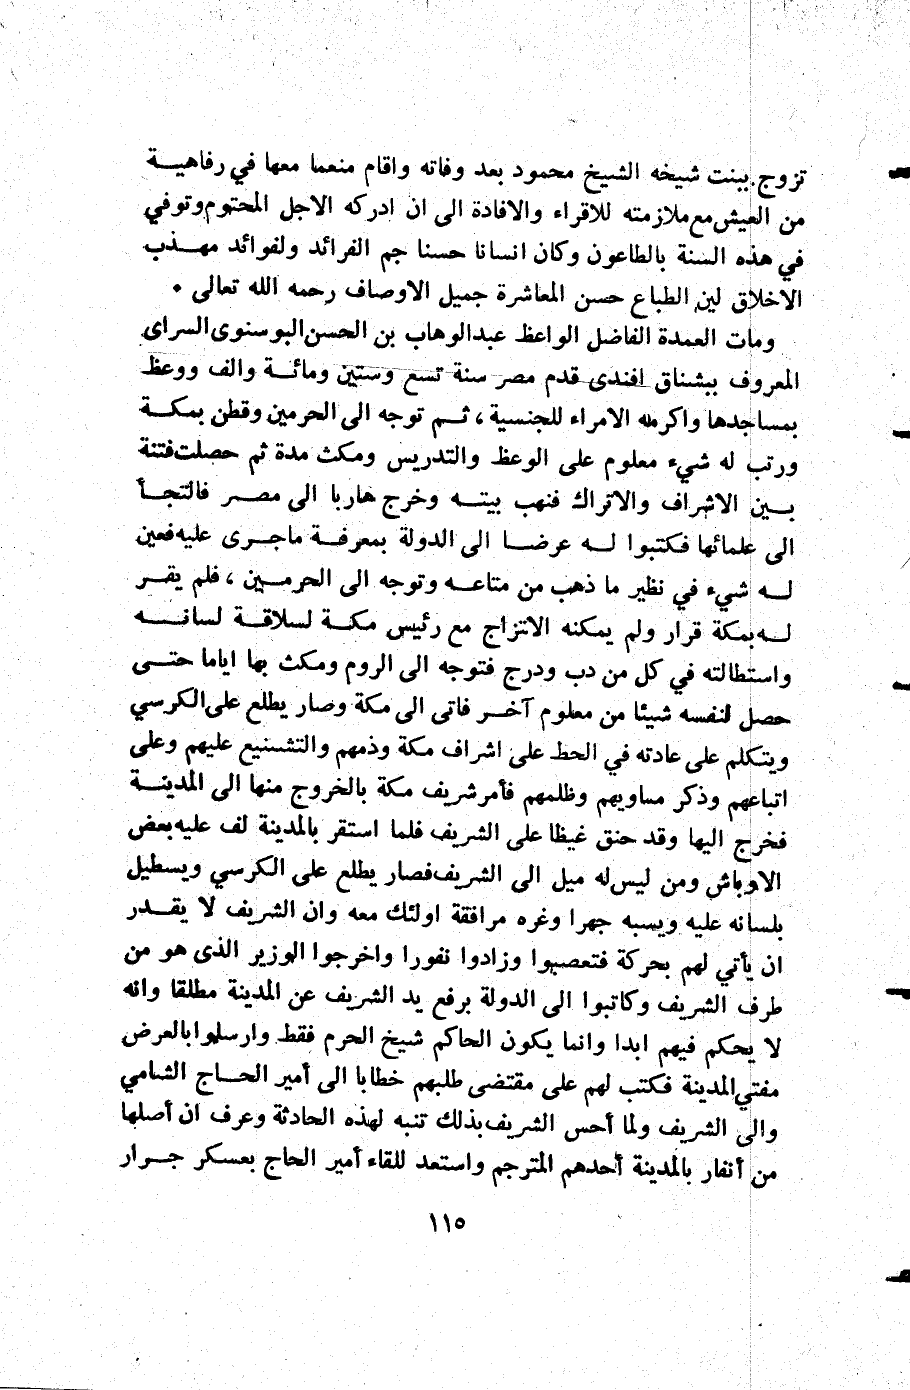 تزوج ببنت شيخه الشيخ محمود بعد وفاته واقام منعما معها في رفاهية
من العيش مع ملازمته للاقراء والافادة الى ان ادركه الاجل المحتوم وتوفي
في هذه السنة بالطاعون وكان انسانا حسنا جم الفرائد ولفوائد مهذب
الاخلاق لين الطباع حسن المعاشرة جميل الاوصاف رحمه الله تعالى •
ومات العمدة الفاضل الواعظ عبدالوهاب بن الحسن البوسنوى السراى
المعروف ببشناق افندى قدم مصر سنة تسع وستين ومائة والف ووعظ
بمساجدها واكرمه الامراء للجنسية ، ثم توجه الى الحرمين وقطن بمكة
ورتب له شيء معلوم على الوعظ والتدريس ومكث مدة ثم حصلت فتنة
بين الاشراف والاتراك فنهب بيته وخرج هاربا الى مصر فالتجأ
الى علمائها فكتبوا له عرضا الى الدولة بمعرفة ماجرى عليه فعين
له شيء في نظير ما ذهب من متاعه وتوجه الى الحرمين ، فلم يقر
له بمكة قرار ولم يمكنه الانتزاج مع رئيس مكة لسلاقة لسانه
واستطالته في كل من دب ودرج فتوجه الى الروم ومكث بها اياما حتى
حصل لنفسه شيئا من معلوم آخر فاتى الى مكة وصار يطلع على الكرسي
ويتكلم على عادته في الحط على اشراف مكة وذمهم والتشنيع عليهم وعلى
اتباعهم وذكر مساويهم وظلمهم فأمر شريف مكة بالخروج منها الى المدينة
فخرج اليها وقد حنق غيظا على الشريف فلما استقر بالمدينة لف عليه بعض
الاوباش ومن ليس له ميل الى الشريف فصار يطلع على الكرسي ويسطيل
بلسانه عليه ويسبه جهرا وغره مرافقة اولئك معه وان الشريف لا يقدر
ان يأتي لهم بحركة فتعصبوا وزادوا نفورا واخرجوا الوزير الذى هو من
طرف الشريف وكاتبوا الى الدولة برفع يد الشريف عن المدينة مطلقا وانه
لا يحكم فيهم ابدا وانما يكون الحاكم شيخ الحرم فقط وارسلوا بالعرض
مفتي المدينة فكتب لهم على مقتضى طلبهم خطابا الى أمير الحاج الشامي
والى الشريف ولما أحس الشريف بذلك تنبه لهذه الحادثة وعرف ان أصلها
من أنفار بالمدينة أحدهم المترجم واستعد للقاء أمير الحاج بعسكر جرار
١١٥